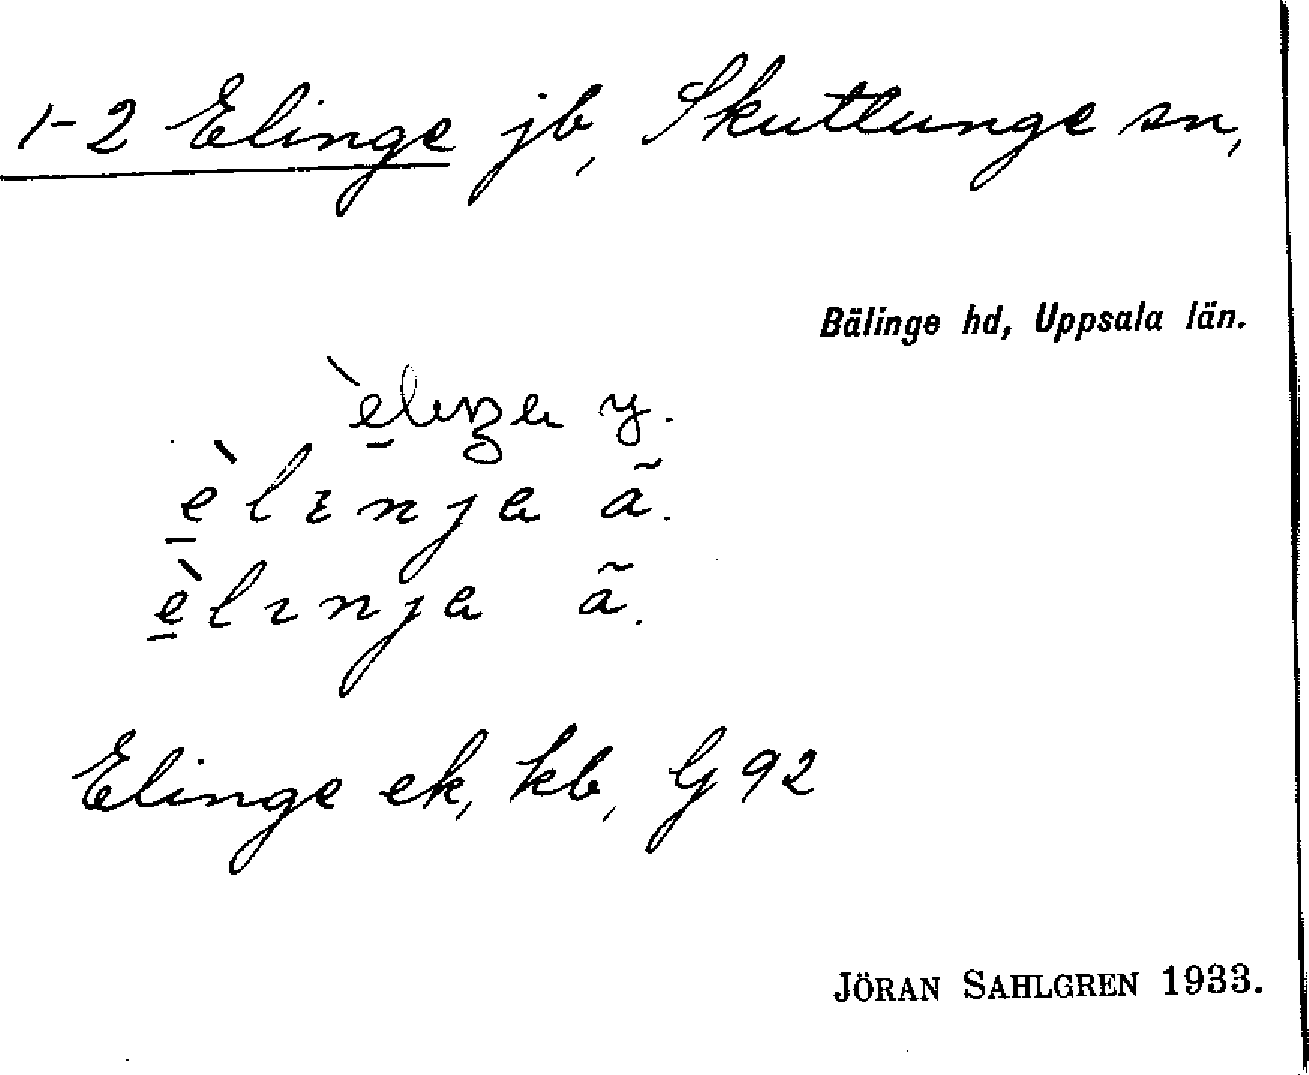 1-2 Elinge jb, Skuttunge sn,
Bälinge hd, Uppsala län.
y.
è̱lɪnja ã.
è̱lɪnja ã.
Elinge ek, kb, G 92
JÖRAN SAHLGREN 1933.